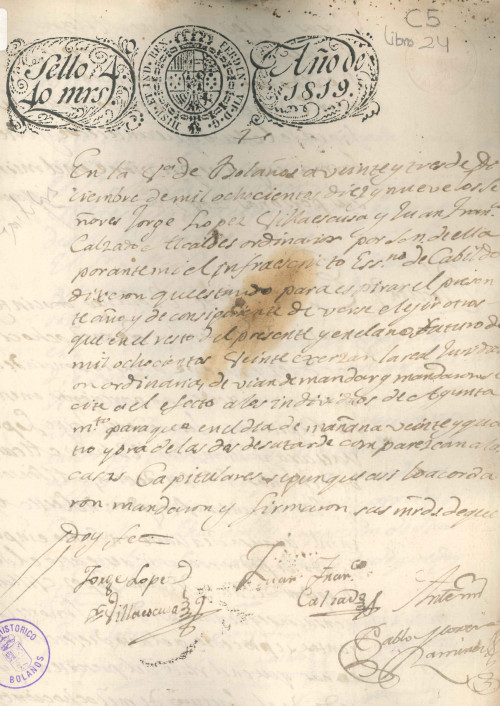 C5
libro 24
Sello 4
40 mrs
HISP. ET IND. REX
FERDIN. VII. D. G.
Año de
1819.
En la Va. de Bolaños a veinte y tres de Di
ciembre de mil ochocientos diez y nueve los Se
ñores Jorge Lopez Villaescusa y Juan Franco
Calzado Alcaldes ordinarios por S.M. de ella
por ante mi el infraescrito Essno de Cabildo
dixeron que estando para espirar el presen
te año y de consiguiente de verse elejir otros
que en el resto del presente y en el año futuro de
mil ochocientos veinte exerzan la real Jurisdi
on ordinaria, devian de mandar y mandaron se
cite a el efecto a los individuos de Ayunta
mto para que en el dia de mañana veinte y qua
tro y ora de las dos de su tarde comparezcan a las
casas Capitulares y por que asi lo acorda
ron mandaron y firmaron sus mrds de que
doy fe
Jorge Lopez
Villaescusa
Juan Franco
Calzado
Ante mi
Pablo
Ramirez
HISTORICO
BOLAÑOS